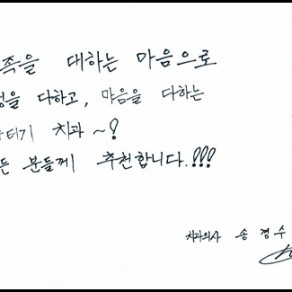 족을 대하는 마음으로
성을 다하고, 마음을 다하는
치과~?
든 분들께 추천합니다.!!!
치과의사 송 경 수